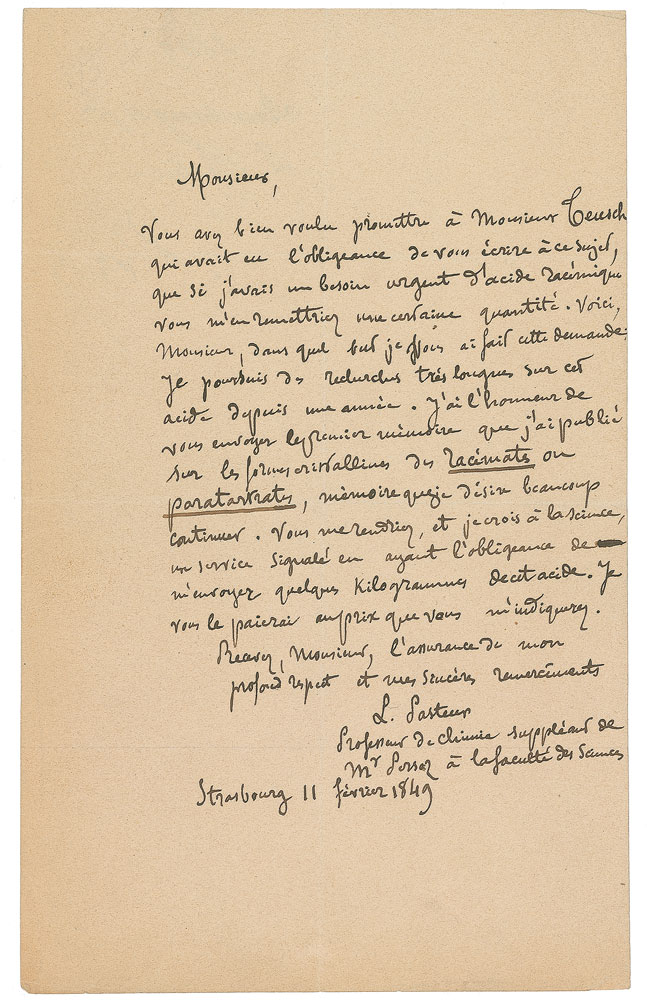 Monsieur,
Vous avez bien voulu promettre à Monsieur Teresch
qui avait eu l'obligeance de vous écrire à ce sujet,
que si j'avais un besoin urgent d'acide racémique
vous m'en remettriez une certaine quantité. Voici,
Monsieur, dans quel but je vous ai fait cette demande.
Je poursuis des recherches très longues sur cet
acide depuis une année. J'ai l'honneur de
vous envoyer le premier mémoire que j'ai publié
sur les formes cristallines des racémates ou
paratartrates, mémoire que je désire beaucoup
continuer. Vous me rendriez, et je crois à la science,
un service signalé en ayant l'obligeance de
m'envoyer quelques Kilogrammes de cet acide. Je
vous le paierai au prix que vous m'indiquerez.
Recevez, Monsieur, l'assurance de mon
profond respect et mes sincères remerciments
L. Pasteur
Professeur de chimie suppléant de
Mr Persoz à la faculté des Sciences
Strasbourg 11 février 1849